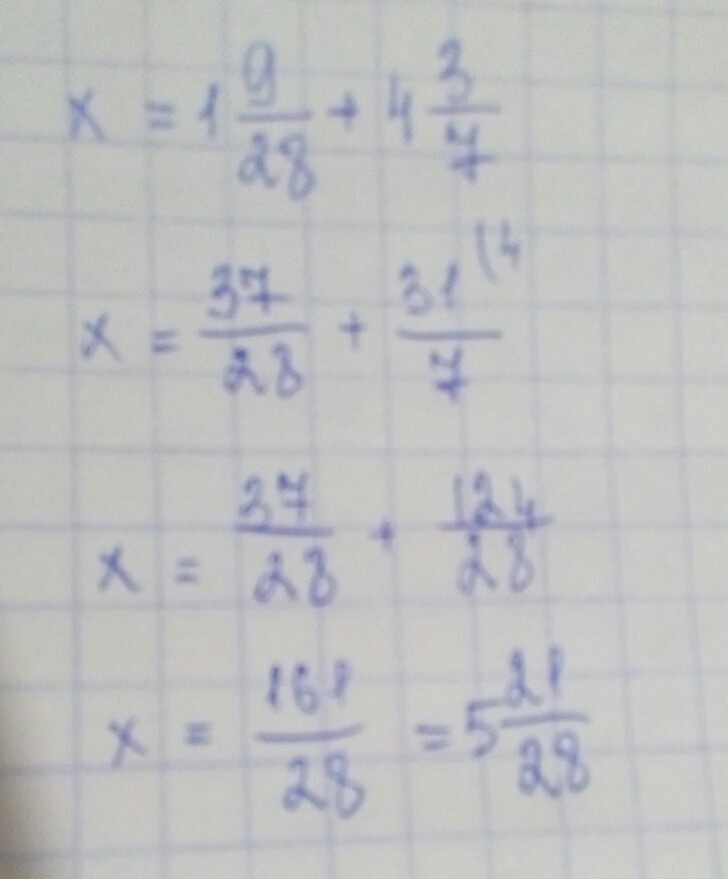 x = 1 9/28 + 4 3/7
x = 37/28 + 31/7 (4
x = 37/28 + 124/28
x = 161/28 = 5 21/28